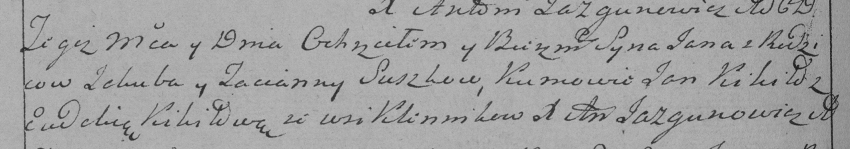 X Antoni Jazgunowicz AD CD
Tegoż Mca y Dnia Ochrzciłem y Bierzm Syna Jana z Rodzi
cow Jakuba y Tacianny Suszkow, Kumowie Jan Kikiłł z
Eudokią Kikiłłową ze wsi Klinnikow X An Jazgunowicz A